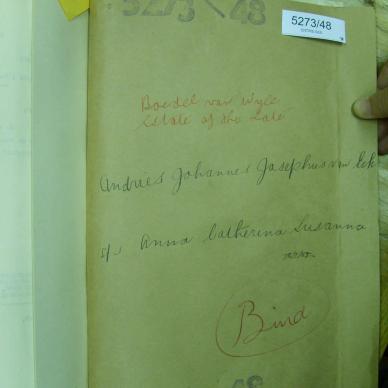 5273/48
5273/48
Boedel van Wyle
Estate of the Late
Andries Johannes Josephus van Eck
s/s Anna Catherina Susanna
Bind
48